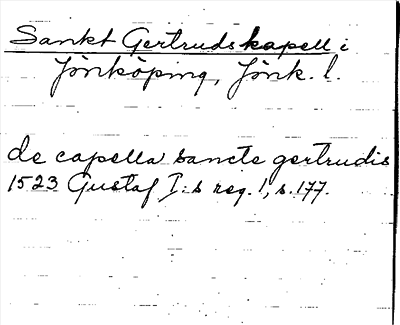 Sankt Gertruds kapell i
Jönköping, Jönk. l.
de capella sancte gertrudis
1523 Gustaf I:s reg. 1, s. 177.